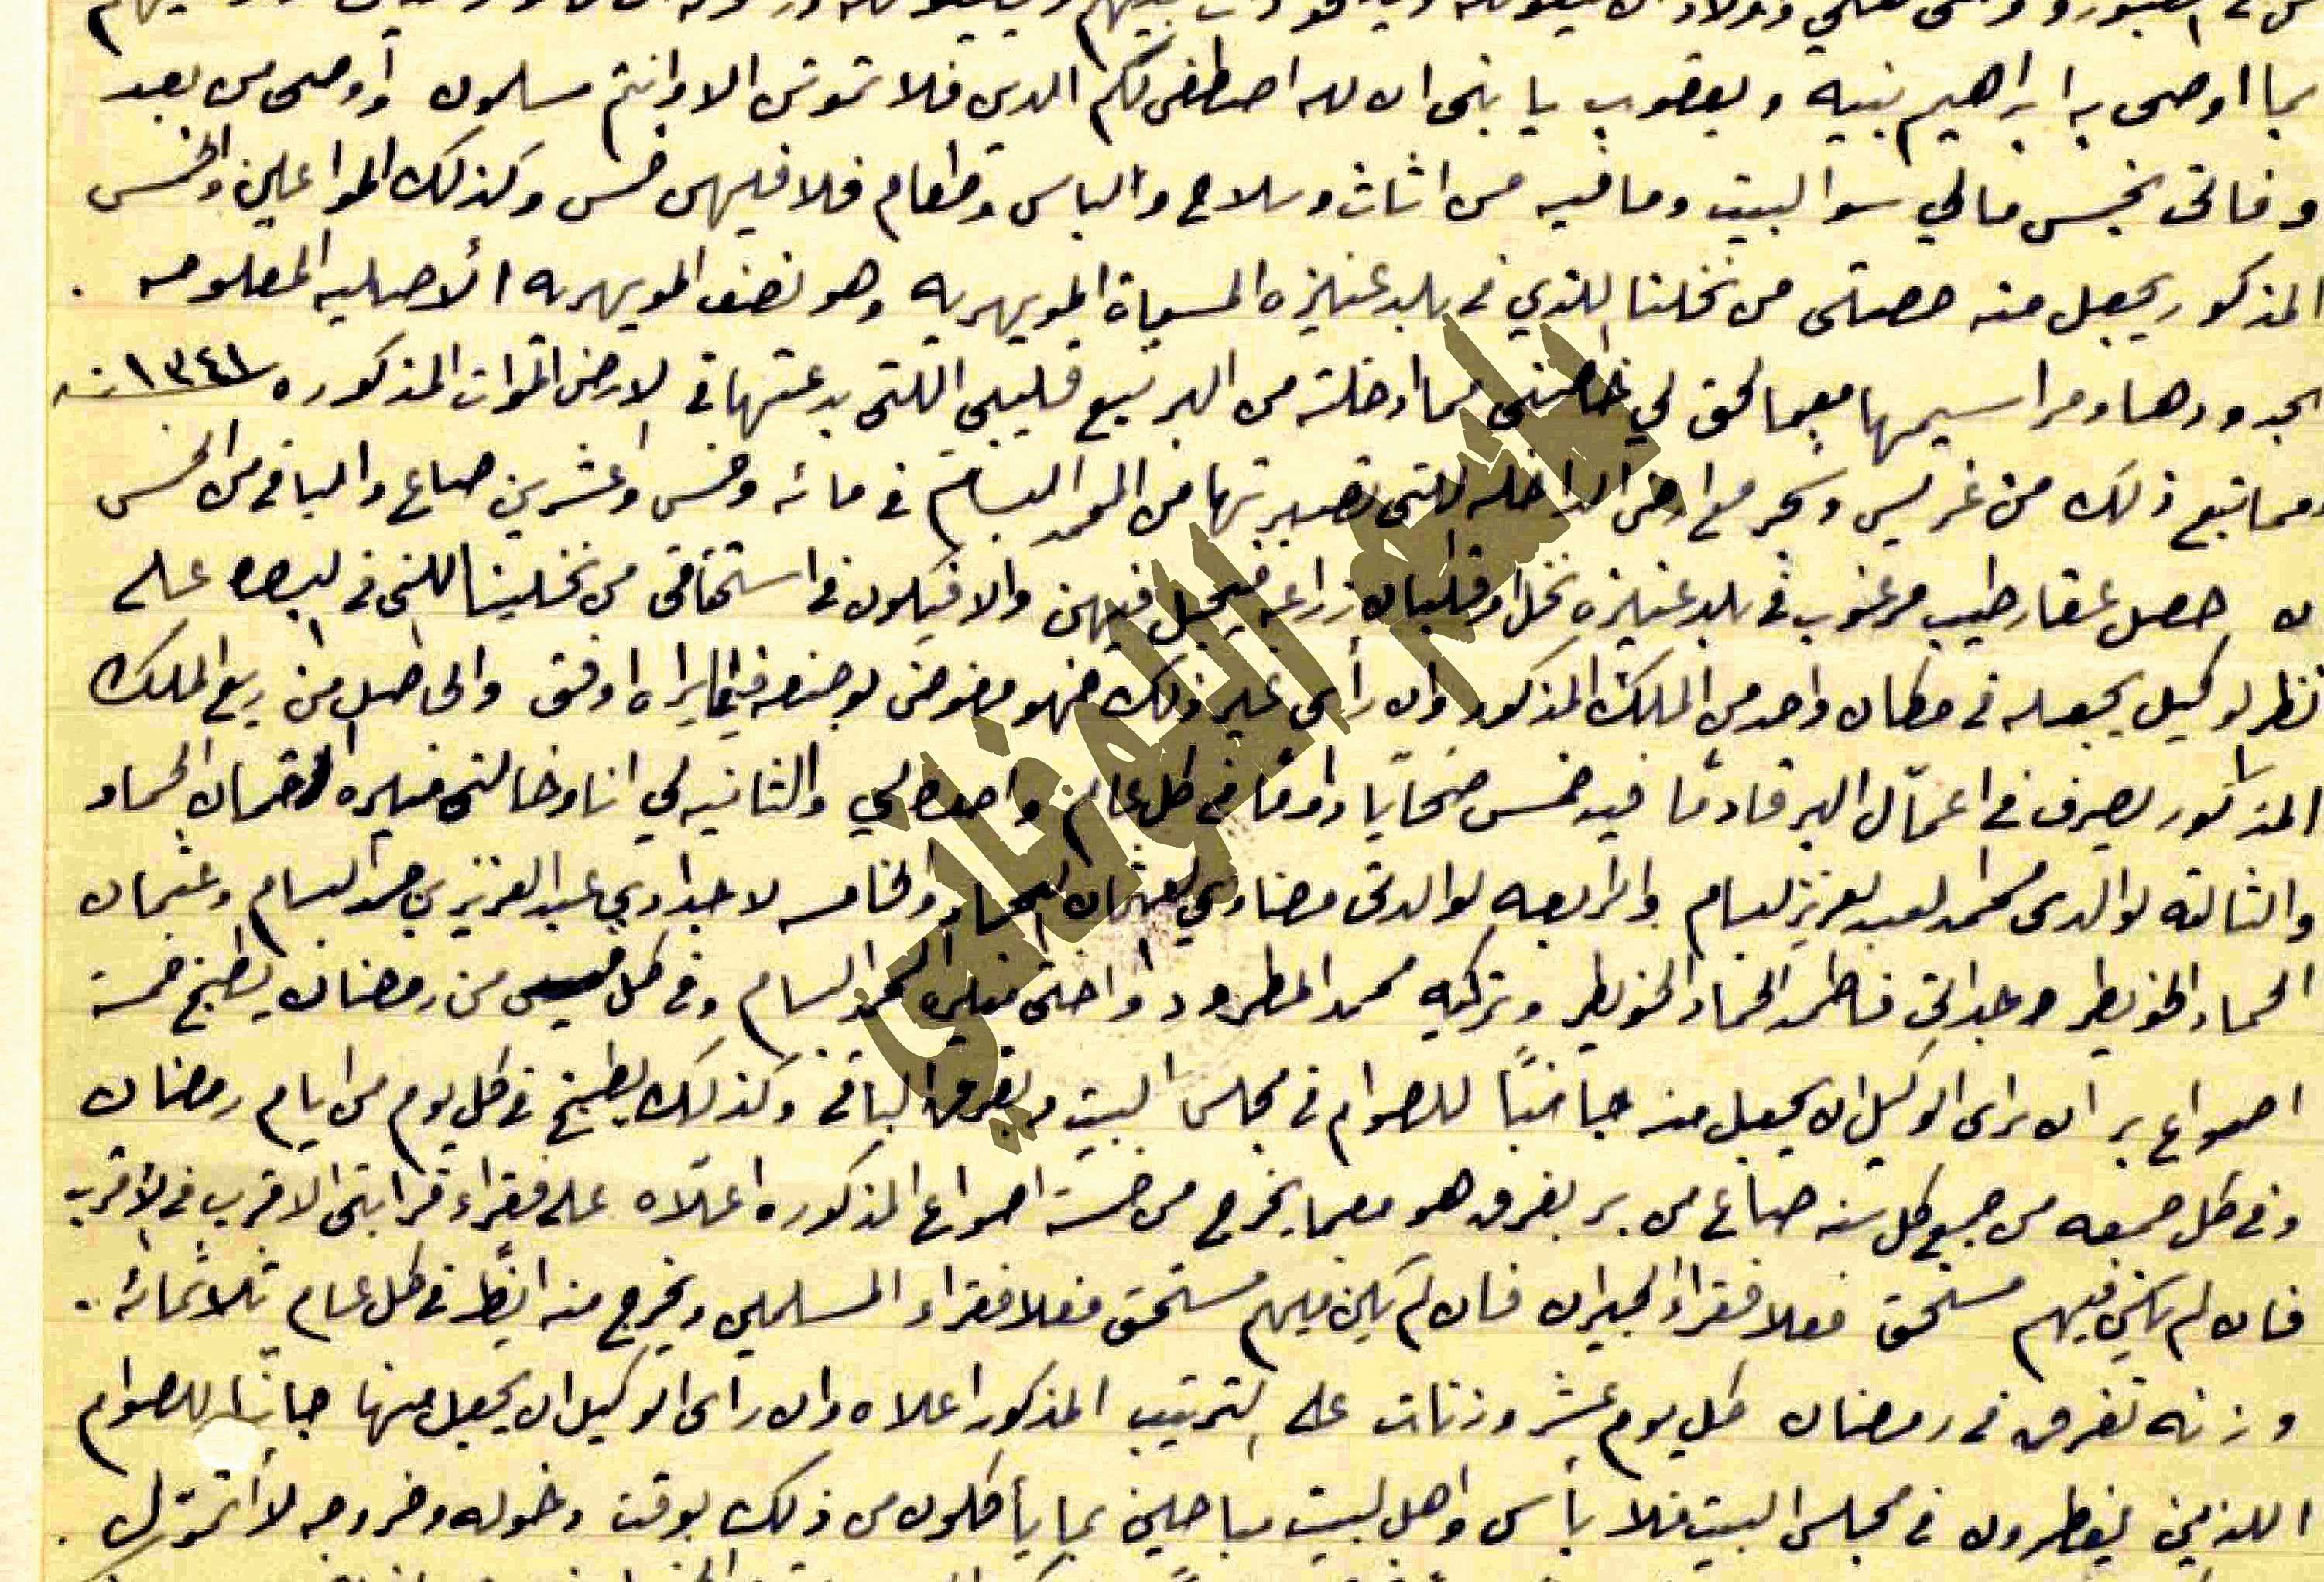 بما اوصى به ابراهيم بنيه ويعقوب يا بني ان الله اصطفى لكم الدين فلا تموتن الا وانتم مسلمون وأوصى من بعد
وفاتي بخمس مالي سوا البيت وما فيه من اثاث وسلاح والباس وطعام فلا فيهن خمس وكذلك المواعين والخمس
المذكور يجعل منه حصتي من نخلنا اللذي في بلد عنيزه المسماة المويهريه وهو نصف المويهريه الأصليه المعلومه .
بحدودها ومراسيمها معما لحق لي خاصتي مما ادخلته من البر تبع قليبي اللتي بدعتها في الارض الموات المذكوره ١٣٤١ سنه
ومما تبع ذلك من غريس وشجر مع ارض الداخله اللتي تصبرتها من المحمد البسام في مائه وخمس وعشرين صاع والباقي من الخمس
ان حصل عقار طيب مرغوب في بلد عنيزه نخل او قلبان زراعه فيجعل فيهن والا فيكون في استحقاقي من نخلينا اللتي في البصره على
نظر الوكيل يجعله في مكان واحد من الملك المذكور وان رأى غير ذلك فهو مفوض بوضعه فيما يراه اوفق والحاصل من ريع الملك
المذكور يصرف في اعمال البر قادمًا فيه خمس ضحايا دوامًا في كل عام واحده لي والثانيه لي انا وخالتي منيره العثمان الحماد
والثالثه لوالدي محمد العبد العزيز البسام والرابعه لوالدتي مضاوي العثمان الحماد والخامسه لاجدادي عبد العزيز بن حمد البسام وعثمان
الحماد الخويطر وجداتي فاطمه الحماد الخويطر وتركيه محمد المطرود واختي منيره المحمد البسام وفي كل خميس من رمضان يطبخ خمسة
اصواع بر ان راى الوكيل ان يجعل منه جانبًا للصوام في مجلس البيت ويفرق الباقي وكذلك يطبخ في كل يوم من ايام رمضان
وفي كل جمعه من جمع كل سنه صاع من بر يفرق هو معما يخرج من خمسة اصواع المذكوره اعلاه على فقراء قرابتي الاقرب فالأقرب
فان لم يكن فيهم مستحق فعلا فقراء الجيران فان لم يكن فيهم مستحق فعلا فقراء المسلمين ويخرج منه ايضًا في كل عام ثلاثمائه
وزنه تفرق في رمضان كل يوم عشر وزنات على الترتيب المذكور اعلاه وان راى الوكيل ان يجعل منها جانبًا للصوام
اللذين يفطرون في مجلس البيت فلا بأس واهل البيت مباحين بما يأكلون من ذلك بوقت دخوله وخروجه لا